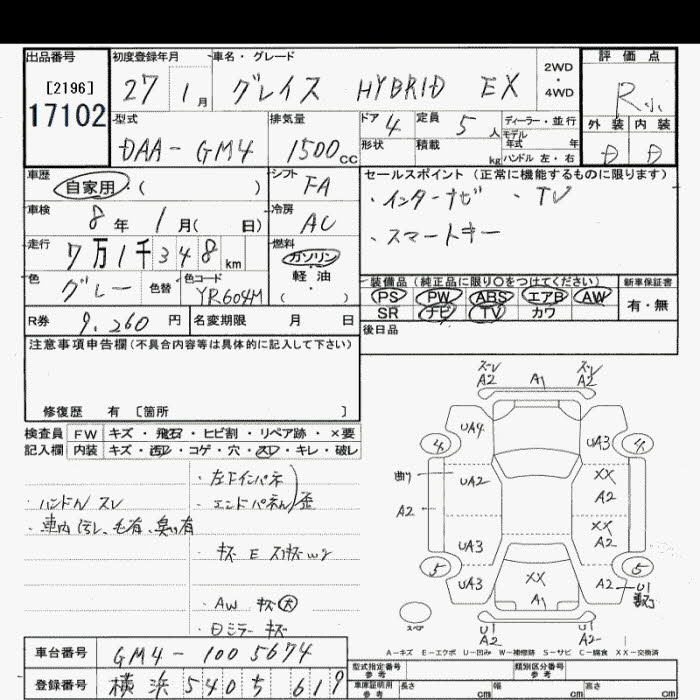 出品番号 初度登録年月 車名・グレード 2WD・4WD 評価点
[2196]
17102
27 1月 グレイス HYBRID EX
R小
型式 排気量 ドア 4 定員 5人 ディーラー・並行 外装 内装
DAA-GM4 1500cc 形状 積載 kg モデル年式 年
ハンドル 左・右
D D
車歴 自家用・( ) シフト FA
セールスポイント (正常に機能するものに限ります)
・インターナビ ・TV
・スマートキー
車検 8年 1月( 日) 冷房 AC
走行 7万1千348km 燃料 ガソリン 軽油 ( ・ )
色 グレー 色替 色コード YR604M
装備品 (純正品に限り○をつけてください) 新車保証書
PS PW ABS エアB AW
SR ナビ TV カワ 有・無
R券 9,260円 名変期限 月 日
後日品
注意事項申告欄(不具合内容等は具体的に記入して下さい)
修復歴 有 [箇所 ]
検査員 FW キズ・飛石・ヒビ割・リペア跡・×要
記入欄 内装 キズ・汚レ・コゲ・穴・スレ・キレ・破レ
・ハンドル スレ
・車内 汚レ、毛有、臭い有
・左下インパネ
・エンドパネル 歪
・キズ E
・AW キズ大
・日ミラーキズ
スレ A2 A1 スレ A2
UA4 UA3
4 4
曲り UA2 XX A2
A2 XX A2
UA3
5 UA3 XX A1 A2 U1 5
スペア U1 A2 U1 A2
A-キズ E-エクボ U-凹み W-補修跡 S-サビ C-腐食 XX-交換済
車台番号 GM4-1005674
登録番号 横浜 540 ち 619
型式指定番号 参考 類別区分番号 参考
車庫証明用 参考 長さ cm 幅 cm 高さ cm